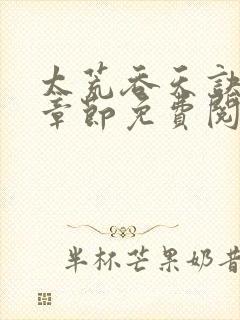 太荒吞天诀
章節免費閱
半杯芒果奶昔